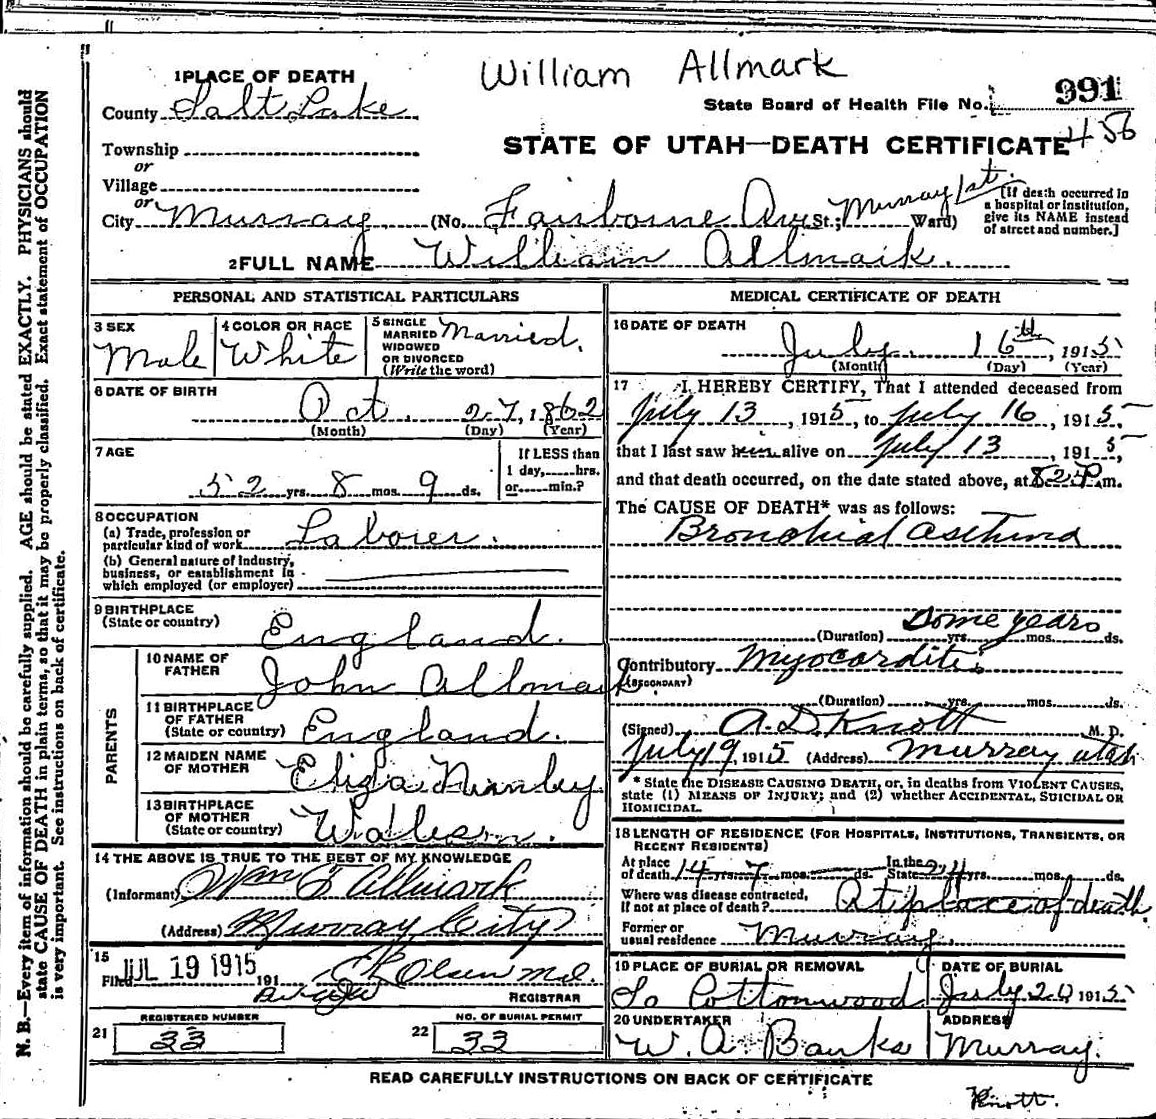 William Allmark
1 PLACE OF DEATH
County Salt Lake
State Board of Health File No. 991
458
Township
or
Village
or
City Murray
STATE OF UTAH—DEATH CERTIFICATE
(No. Fairborne Ave St.; Murray 1st. Ward)
[If death occurred in
a hospital or institution,
give its NAME instead
of street and number.]
2 FULL NAME William Allmark.
PERSONAL AND STATISTICAL PARTICULARS
3 SEX
Male
4 COLOR OR RACE
White
5 SINGLE
MARRIED
WIDOWED
OR DIVORCED
(Write the word)
Married.
6 DATE OF BIRTH
Oct. 27, 1862
(Month) (Day) (Year)
7 AGE
52 yrs. 8 mos. 9 ds.
If LESS than
1 day, hrs.
or min.?
8 OCCUPATION
(a) Trade, profession or
particular kind of work Laborer.
(b) General nature of industry,
business, or establishment in
which employed (or employer)
9 BIRTHPLACE
(State or country)
England.
PARENTS
10 NAME OF
FATHER
John Allmark
11 BIRTHPLACE
OF FATHER
(State or country)
England.
12 MAIDEN NAME
OF MOTHER
Eliza
13 BIRTHPLACE
OF MOTHER
(State or country)
14 THE ABOVE IS TRUE TO THE BEST OF MY KNOWLEDGE
(Informant) Wm E Allmark
(Address) Murray City
15
Filed JUL 19 1915 191
Olsen M.D.
REGISTRAR
REGISTERED NUMBER
21 33
NO. OF BURIAL PERMIT
22 33
MEDICAL CERTIFICATE OF DEATH
16 DATE OF DEATH
July 16th, 1915
(Month) (Day) (Year)
17 I HEREBY CERTIFY, That I attended deceased from
July 13, 1915, to July 16, 1915.
that I last saw him alive on July 13, 1915,
and that death occurred, on the date stated above, at P.m.
The CAUSE OF DEATH* was as follows:
Bronchial asthma
Some years
(Duration) yrs. mos. ds.
Contributory Myocarditis
(SECONDARY)
(Duration) yrs. mos. ds.
(Signed) A.D. Knott M. D.
July 19, 1915 (Address) Murray Utah
* State the DISEASE CAUSING DEATH, or, in deaths from VIOLENT CAUSES,
state (1) MEANS OF INJURY; and (2) whether ACCIDENTAL, SUICIDAL OR
HOMICIDAL.
18 LENGTH OF RESIDENCE (FOR HOSPITALS, INSTITUTIONS, TRANSIENTS, OR
RECENT RESIDENTS)
At place
of death 14 yrs. 7 mos. ds.
In the
State 24 yrs. mos. ds.
Where was disease contracted,
If not at place of death? At place of death.
Former or
usual residence Murray.
19 PLACE OF BURIAL OR REMOVAL
So Cottonwood
DATE OF BURIAL
July 20 1915
20 UNDERTAKER
W. A. Banks
ADDRESS
Murray.
READ CAREFULLY INSTRUCTIONS ON BACK OF CERTIFICATE
Knott.
N. B.—Every item of information should be carefully supplied. AGE should be stated EXACTLY. PHYSICIANS should
state CAUSE OF DEATH in plain terms, so that it may be properly classified. Exact statement of OCCUPATION
is very important. See instructions on back of certificate.